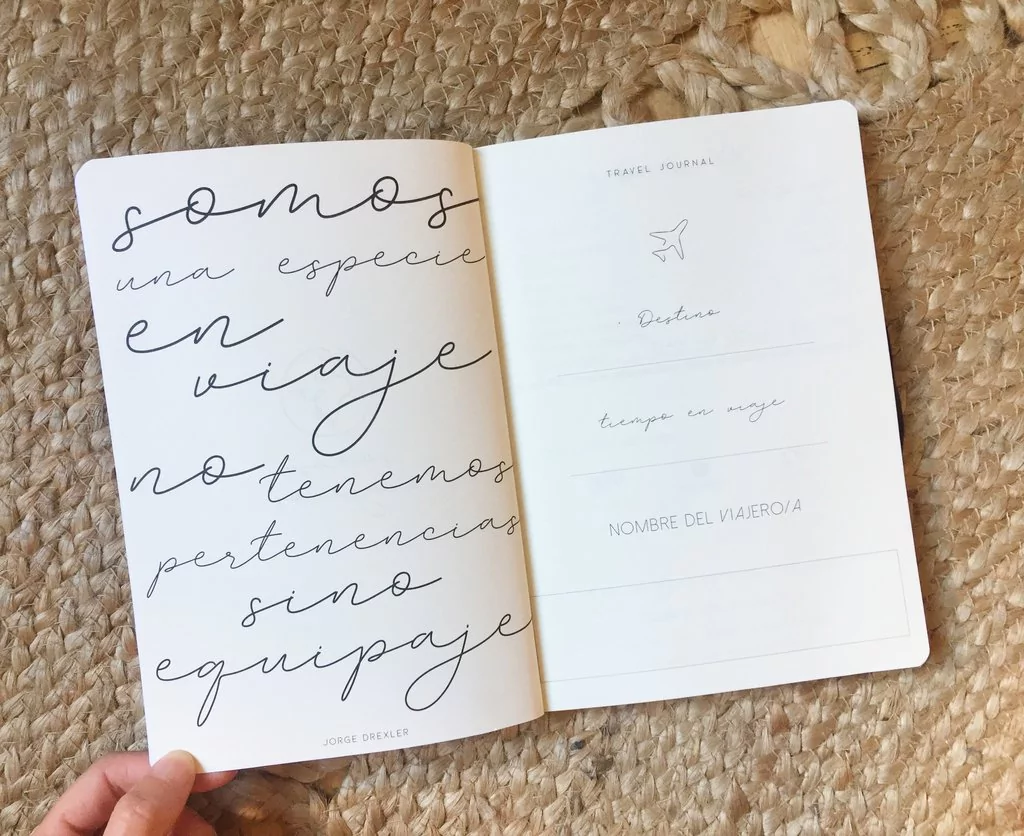 somos
una especie
en
viaje
no tenemos
pertenencias
sino
equipaje
JORGE DREXLER
TRAVEL JOURNAL
Destino
tiempo en viaje
NOMBRE DEL VIAJERO/A